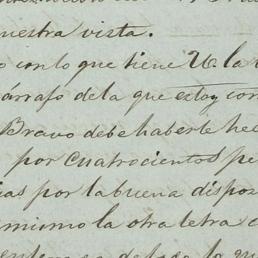 nuestra vista.
con lo que tiene U. la
párrafo de la que estoy con
Bravo debe haberle hec
por cuatrocientos pe
ias por la buena dispos
mismo la otra letra